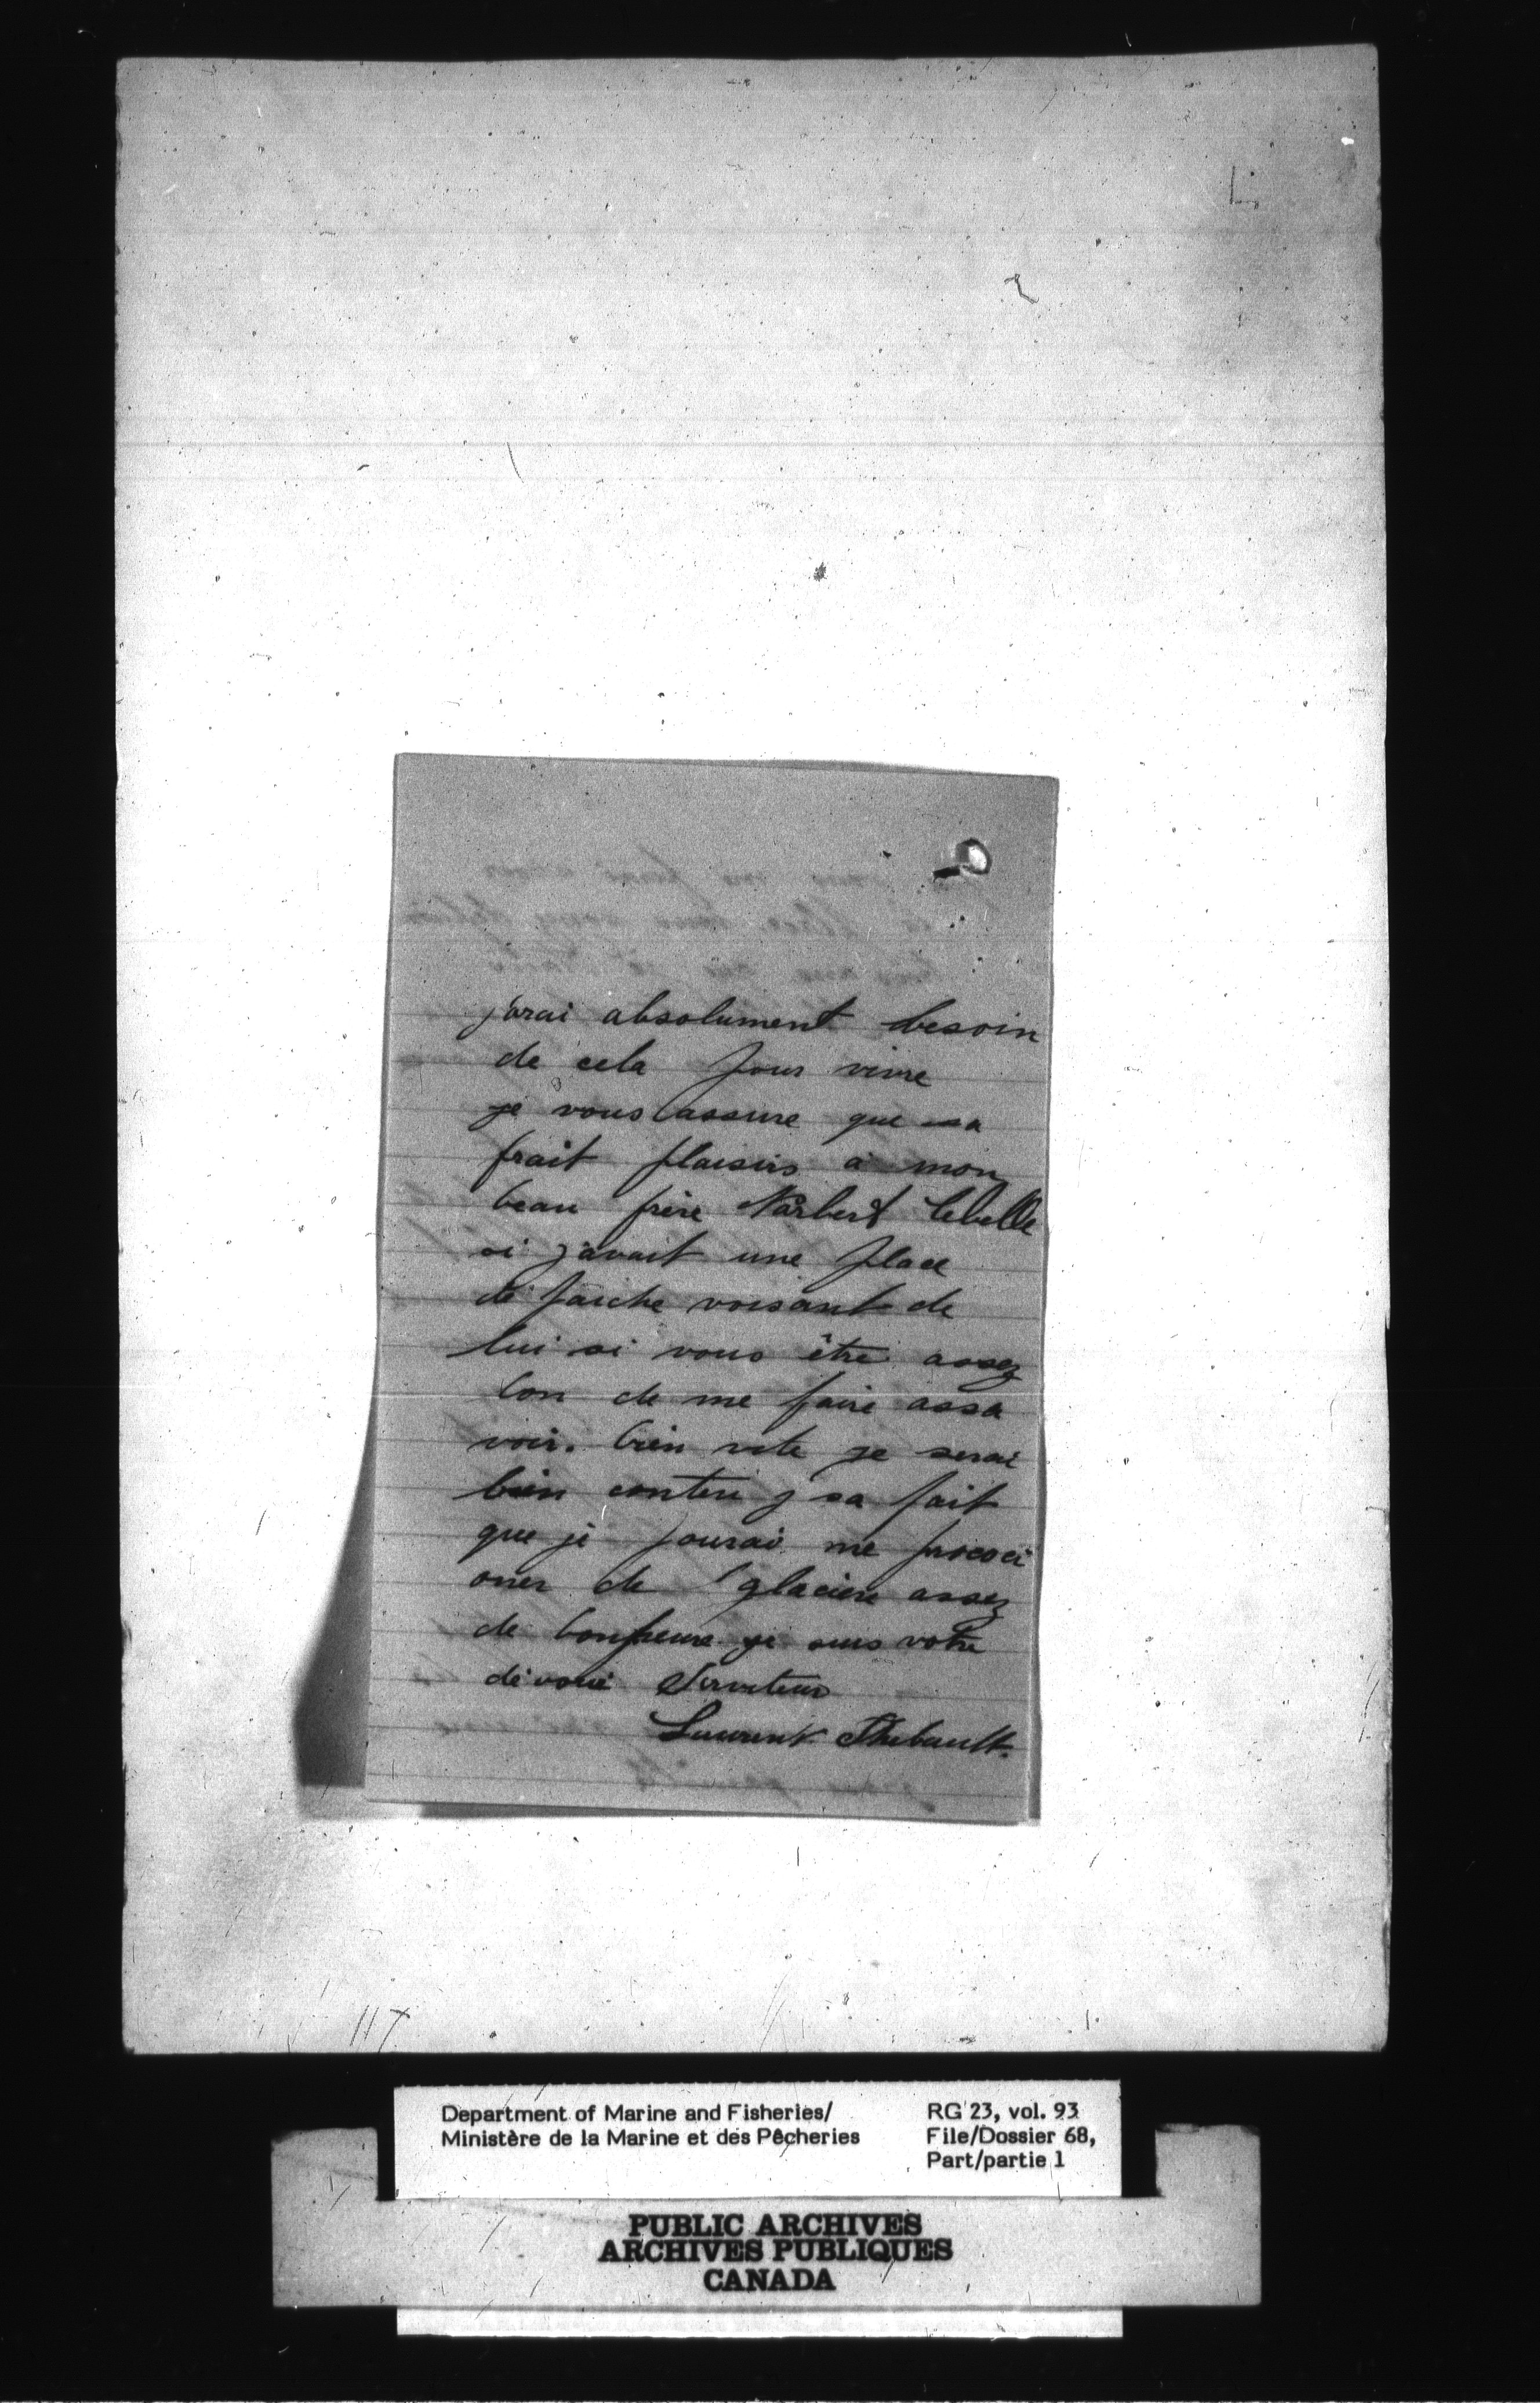 j'arai absolument besoin
de cela pour vivre
je vous assure que sa
frait plaisirs a mon
beau frère Narbert lebelle
si j'avait une place
de paiche voisant de
lui si vous être assez
bon de me faire assa
voir. bien vite je serai
bien conten j sa fait
que je pourai me prococi
oner de glaciere assez
de bonheure je suis votre
dévoué Serviteur
Laurent Thebault.
117
Department of Marine and Fisheries/
Ministère de la Marine et des Pêcheries
RG 23, vol. 93
File/Dossier 68,
Part/partie 1
PUBLIC ARCHIVES
ARCHIVES PUBLIQUES
CANADA